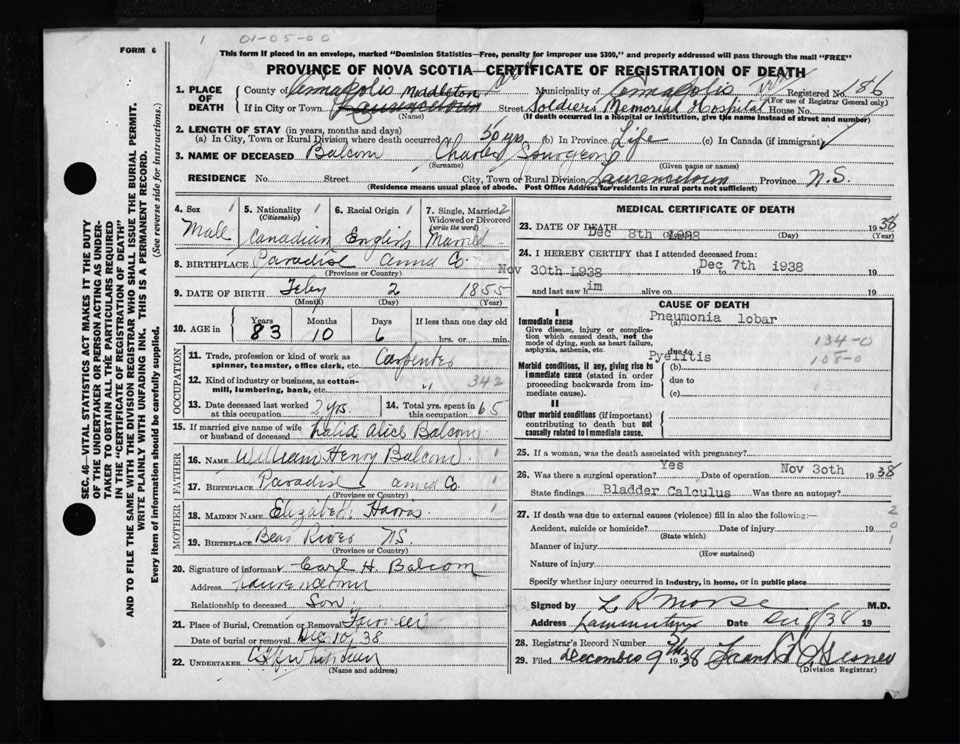 1 01-05-00
FORM 6
This form if placed in an envelope, marked "Dominion Statistics—Free, penalty for improper use $300," and properly addressed will pass through the mail "FREE"
PROVINCE OF NOVA SCOTIA—CERTIFICATE OF REGISTRATION OF DEATH
1. PLACE OF DEATH
County of Annapolis Municipality of Annapolis Registered No. 186
(For use of Registrar General only)
If in City or Town Middleton Lawrencetown Street Soldiers Memorial Hospital House No.
(Name) (If death occurred in a hospital or institution, give the name instead of street and number)
2. LENGTH OF STAY (in years, months and days)
(a) In City, Town or Rural Division where death occurred 50 yrs (b) In Province Life (c) In Canada (if immigrant)
3. NAME OF DECEASED Balcom Charles Spurgeon
(Surname) (Given name or names)
RESIDENCE No. Street City, Town or Rural Division Lawrencetown Province N.S.
(Residence means usual place of abode. Post Office Address for residents in rural parts not sufficient)
4. Sex 1 Male
5. Nationality 1 (Citizenship) Canadian
6. Racial Origin 1 English
7. Single, Married 2 Widowed or Divorced (write the word) Married
8. BIRTHPLACE Paradise Anna Co.
(Province or Country)
9. DATE OF BIRTH Feby 2 1855
(Month) (Day) (Year)
10. AGE in Years Months Days If less than one day old
83 10 6 hrs. or min.
OCCUPATION
11. Trade, profession or kind of work as spinner, teamster, office clerk, etc. Carpenter
12. Kind of industry or business, as cotton-mill, lumbering, bank, etc. " 342
13. Date deceased last worked at this occupation 2 yrs.
14. Total yrs. spent in this occupation 65
15. If married give name of wife or husband of deceased Alice Balcom
FATHER
16. NAME William Henry Balcom 1
17. BIRTHPLACE Paradise Anna Co.
(Province or Country)
MOTHER
18. MAIDEN NAME Elizabeth Harris 1
19. BIRTHPLACE Bear River N.S.
(Province or Country)
20. Signature of informant Carl H. Balcom
Address Lawrencetown
Relationship to deceased Son
21. Place of Burial, Cremation or Removal
Date of burial or removal Dec 10, 38
22. UNDERTAKER
(Name and address)
MEDICAL CERTIFICATE OF DEATH
23. DATE OF DEATH Dec 8th 1938 1938
(Day) (Year)
24. I HEREBY CERTIFY that I attended deceased from:
Nov 30th 1938 19 to Dec 7th 1938 19
and last saw him alive on 19
CAUSE OF DEATH
I
Immediate cause
Give disease, injury or complication which caused death, not the mode of dying, such as heart failure, asphyxia, asthenia, etc.
(a) Pneumonia lobar
134-0
due to
Pyelitis
108-0
Morbid conditions, if any, giving rise to immediate cause (stated in order proceeding backwards from immediate cause).
(b)
due to
(c)
II
Other morbid conditions (if important) contributing to death but not causally related to immediate cause.
25. If a woman, was the death associated with pregnancy?
26. Was there a surgical operation? Yes Date of operation Nov 30th 1938
State findings Bladder Calculus Was there an autopsy?
27. If death was due to external causes (violence) fill in also the following:— 2
Accident, suicide or homicide? Date of injury 19 0
(State which)
1
Manner of injury
(How sustained)
Nature of injury
Specify whether injury occurred in industry, in home, or in public place
Signed by L R Morse M.D.
Address Date Dec 8/38 19
28. Registrar's Record Number
29. Filed December 9th 1938
(Division Registrar)
SEC. 46—VITAL STATISTICS ACT MAKES IT THE DUTY
OF THE UNDERTAKER OR PERSON ACTING AS UNDER-
TAKER TO OBTAIN ALL THE PARTICULARS REQUIRED
IN THE "CERTIFICATE OF REGISTRATION OF DEATH"
AND TO FILE THE SAME WITH THE DIVISION REGISTRAR WHO SHALL ISSUE THE BURIAL PERMIT.
WRITE PLAINLY WITH UNFADING INK. THIS IS A PERMANENT RECORD.
Every item of information should be carefully supplied. (See reverse side for instructions.)